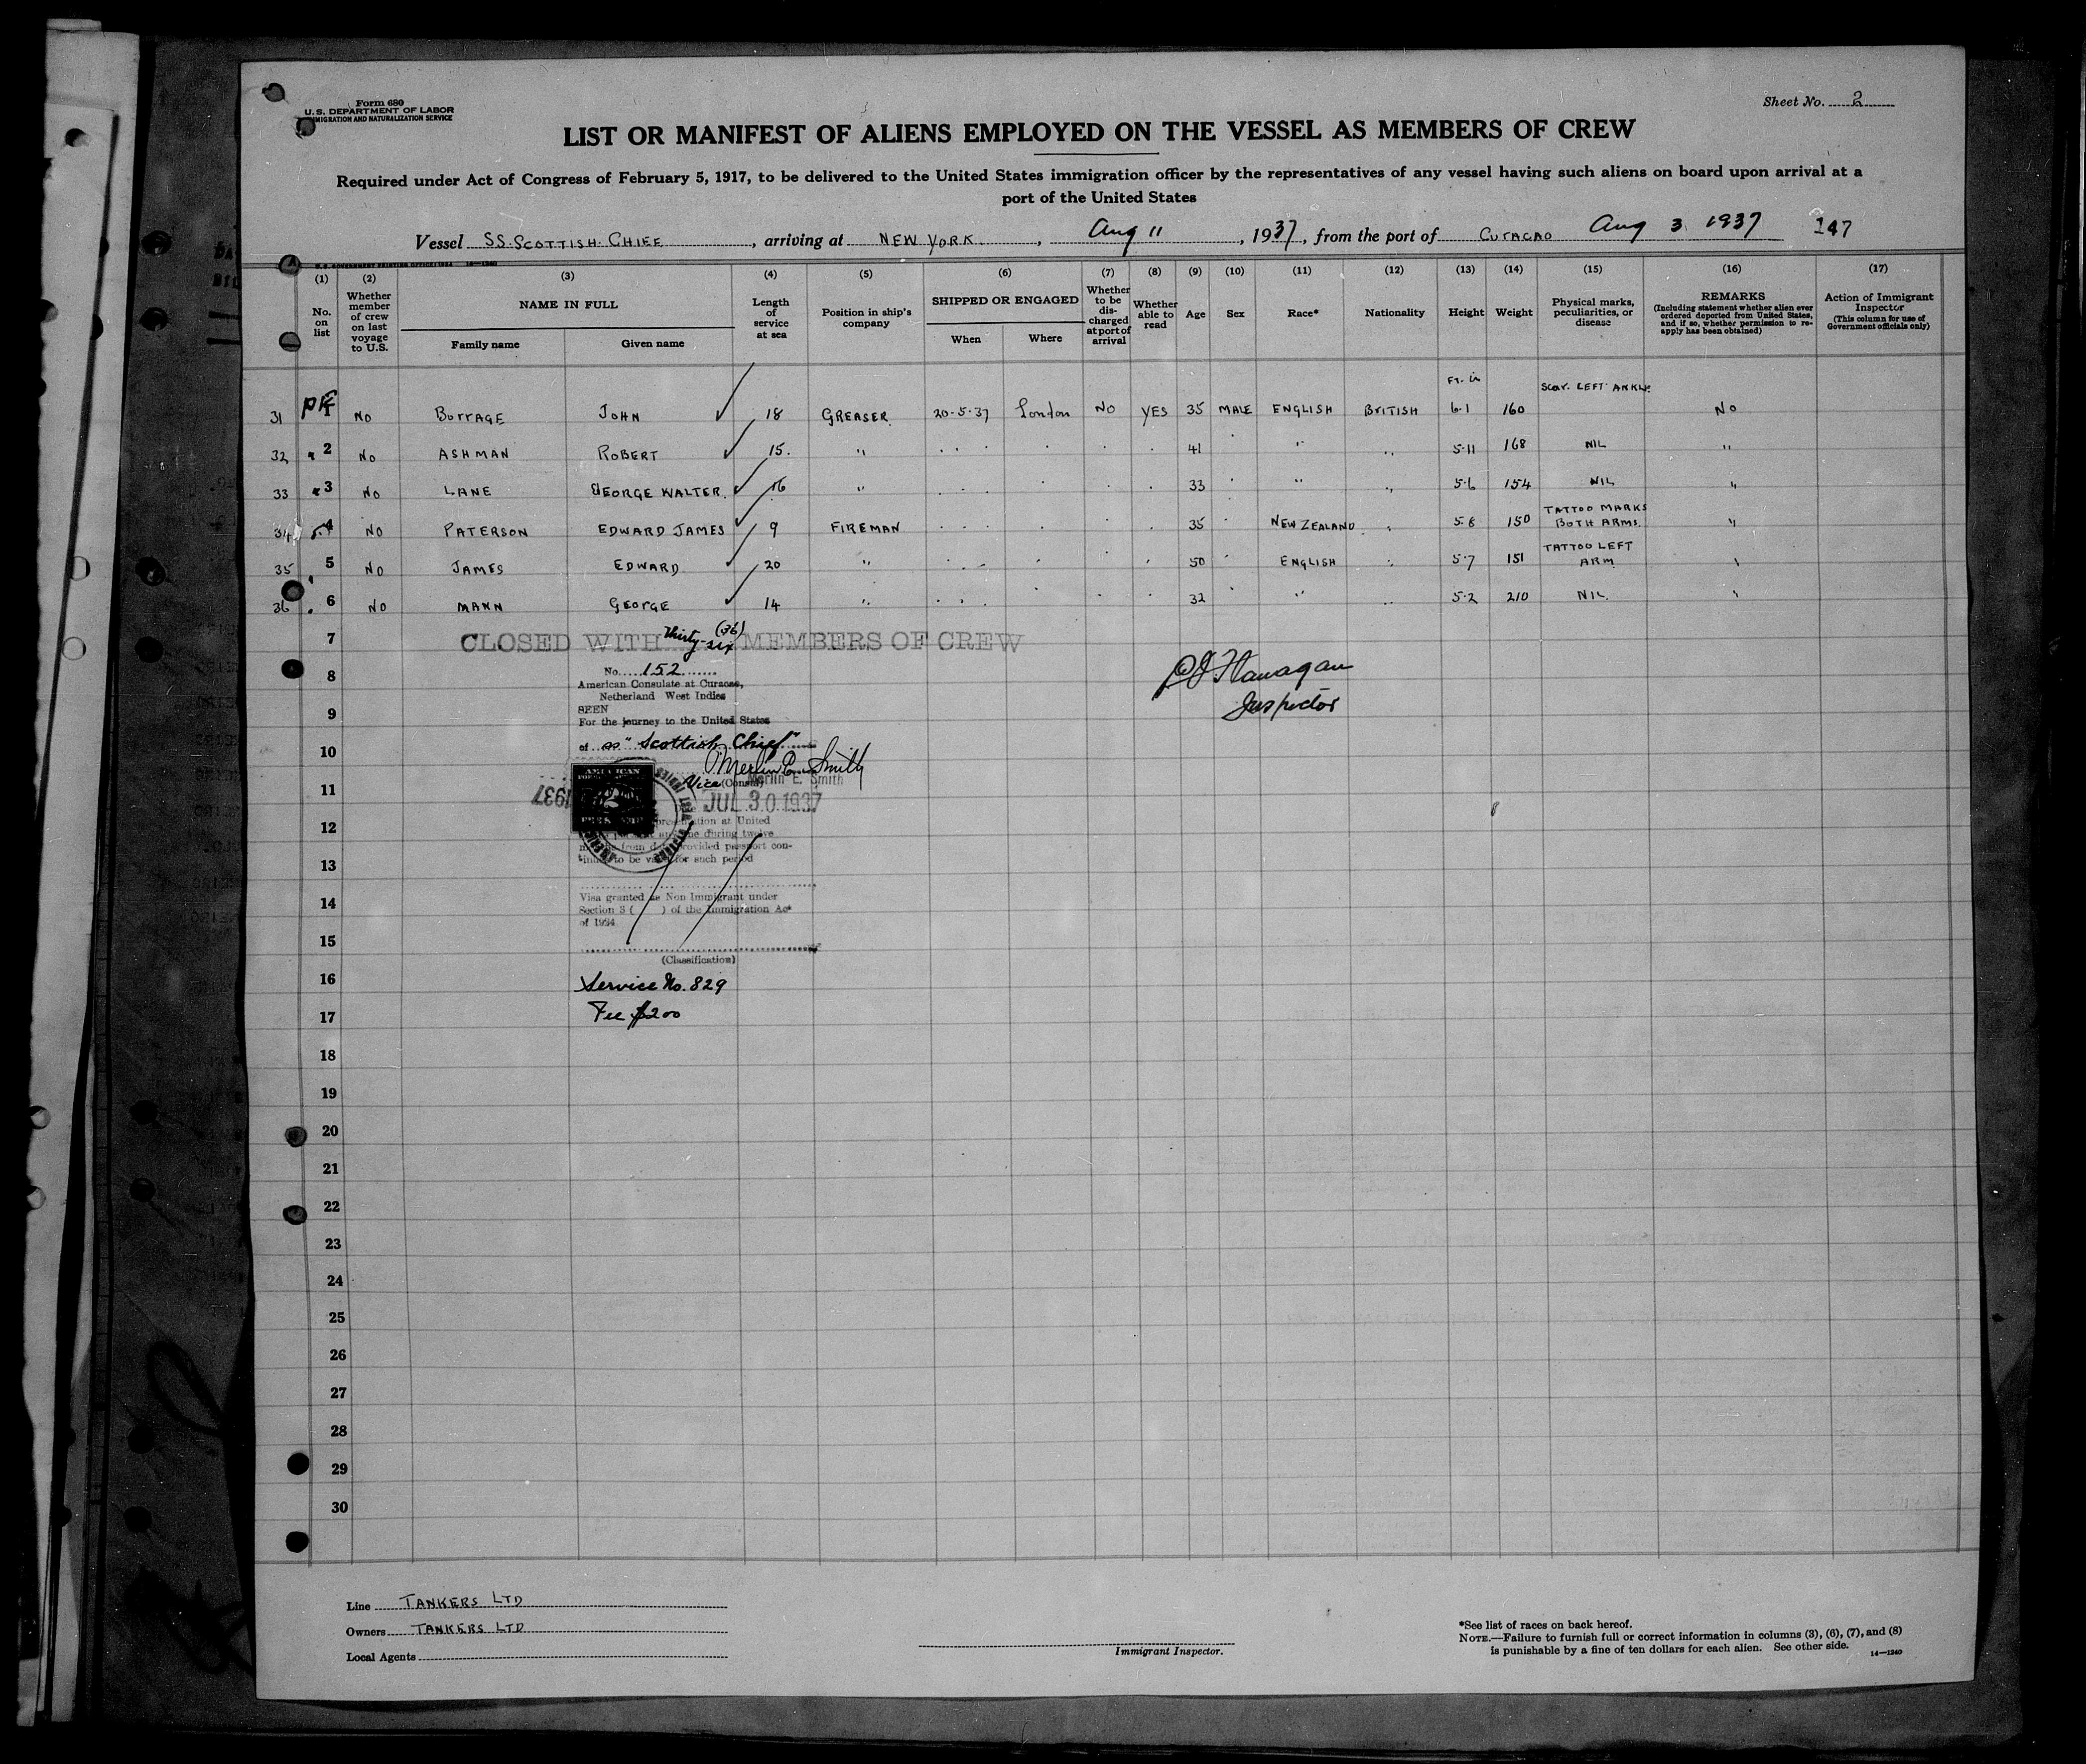 Form 680
U.S. DEPARTMENT OF LABOR
IMMIGRATION AND NATURALIZATION SERVICE
Sheet No. 2
LIST OR MANIFEST OF ALIENS EMPLOYED ON THE VESSEL AS MEMBERS OF CREW
Required under Act of Congress of February 5, 1917, to be delivered to the United States immigration officer by the representatives of any vessel having such aliens on board upon arrival at a
port of the United States
Vessel SS. SCOTTISH. CHIEF, arriving at NEW YORK, Aug 11, 1937, from the port of CURACAO Aug 3 1937 147
(1) (2) (3) (4) (5) (6) (7) (8) (9) (10) (11) (12) (13) (14) (15) (16) (17)
No. on list
Whether member of crew on last voyage to U.S.
NAME IN FULL
Family name
Given name
Length of service at sea
Position in ship's company
SHIPPED OR ENGAGED
When
Where
Whether to be discharged at port of arrival
Whether able to read
Age
Sex
Race*
Nationality
Height
Weight
Physical marks, peculiarities, or disease
REMARKS
(Including statement whether alien ever ordered deported from United States, and if so, whether permission to reapply has been obtained)
Action of Immigrant Inspector
(This column for use of Government officials only)
Ft. in
31 No BURRAGE JOHN 18 GREASER 20-5-37 London NO YES 35 MALE ENGLISH BRITISH 6-1 160 SCAR. LEFT ANKLE No
32 2 No ASHMAN ROBERT 15. " 41 " " 5-11 168 NIL "
33 3 No LANE GEORGE WALTER. 16 " 33 " " 5-6 154 NIL "
34 4 No PATERSON EDWARD JAMES 9 FIREMAN 35 NEW ZEALAND " 5-8 150 TATTOO MARKS BOTH ARMS. "
35 5 No JAMES EDWARD 20 " 50 ENGLISH " 5-7 151 TATTOO LEFT ARM "
36 6 No MANN GEORGE 14 " 32 " " 5-2 210 NIL. "
7 CLOSED WITH thirty-six (36) MEMBERS OF CREW
No. 152
8 American Consulate at Curacao,
Netherland West Indies
SEEN
9 For the journey to the United States
PJ Flanagan
Inspector
10 of ss "Scottish Chief"
Merlin E. Smith
Vice (Consul) Merlin E. Smith
11 1937 JUL 30 1937
12
13
tinues to be valid for such period
14 Visa granted as Non Immigrant under
Section 3 ( ) of the Immigration Act
of 1924
15
(Classification)
16 Service No. 829
17 Fee $2 00
18
19
20
21
22
23
24
25
26
27
28
29
30
Line TANKERS LTD
Owners TANKERS LTD
Local Agents
Immigrant Inspector.
*See list of races on back hereof.
NOTE.—Failure to furnish full or correct information in columns (3), (6), (7), and (8)
is punishable by a fine of ten dollars for each alien. See other side. 14—1240